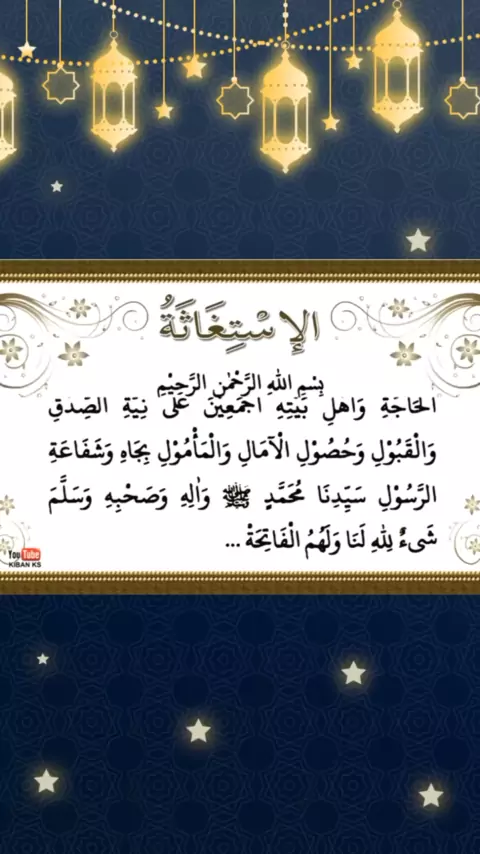 الإِسْتِغَاثَةُ
بِسْمِ اللهِ الرَّحْمٰنِ الرَّحِيْمِ
الحَاجَةِ وَاهلِ بَيتِهِ اجمَعِينَ عَلَى نِيَةِ الصِّدقِ
وَالْقَبُوْلِ وَحُصُوْلِ الْآمَالِ وَالْمَأْمُوْلِ بِجَاهِ وَشَفَاعَةِ
الرَّسُوْلِ سَيِّدِنَا مُحَمَّدٍ ﷺ وَاٰلِهِ وَصَحْبِهِ وَسَلَّمَ
شَىءٌ لِلّٰهِ لَنَا وَلَهُمُ الْفَاتِحَةْ ...
YouTube
KIBAN KS